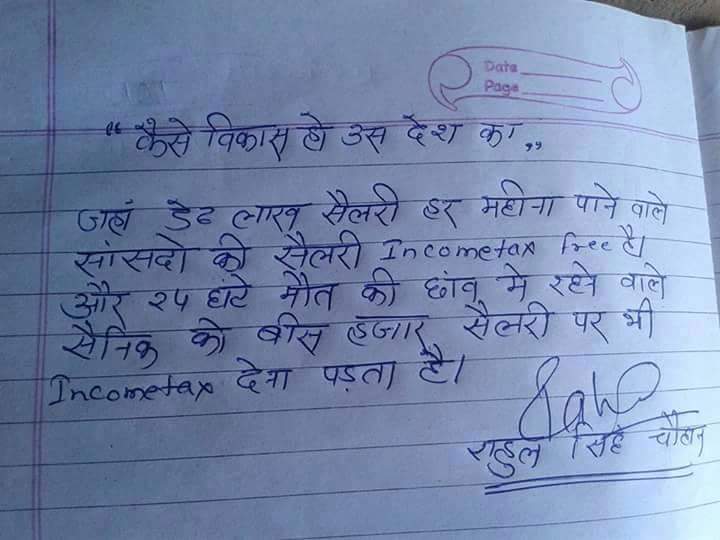 Date
Page
“ कैसे विकास हो उस देश का ,,
जहां डेढ लाख सैलरी हर महीना पाने वाले
सांसदो की सैलरी Incometax free है।
और २५ घंटे मौत की छांव मे रहने वाले
सैनिक को बीस हजार सैलरी पर भी
Incometax देना पड़ता है।
राहुल सिंह चौहान